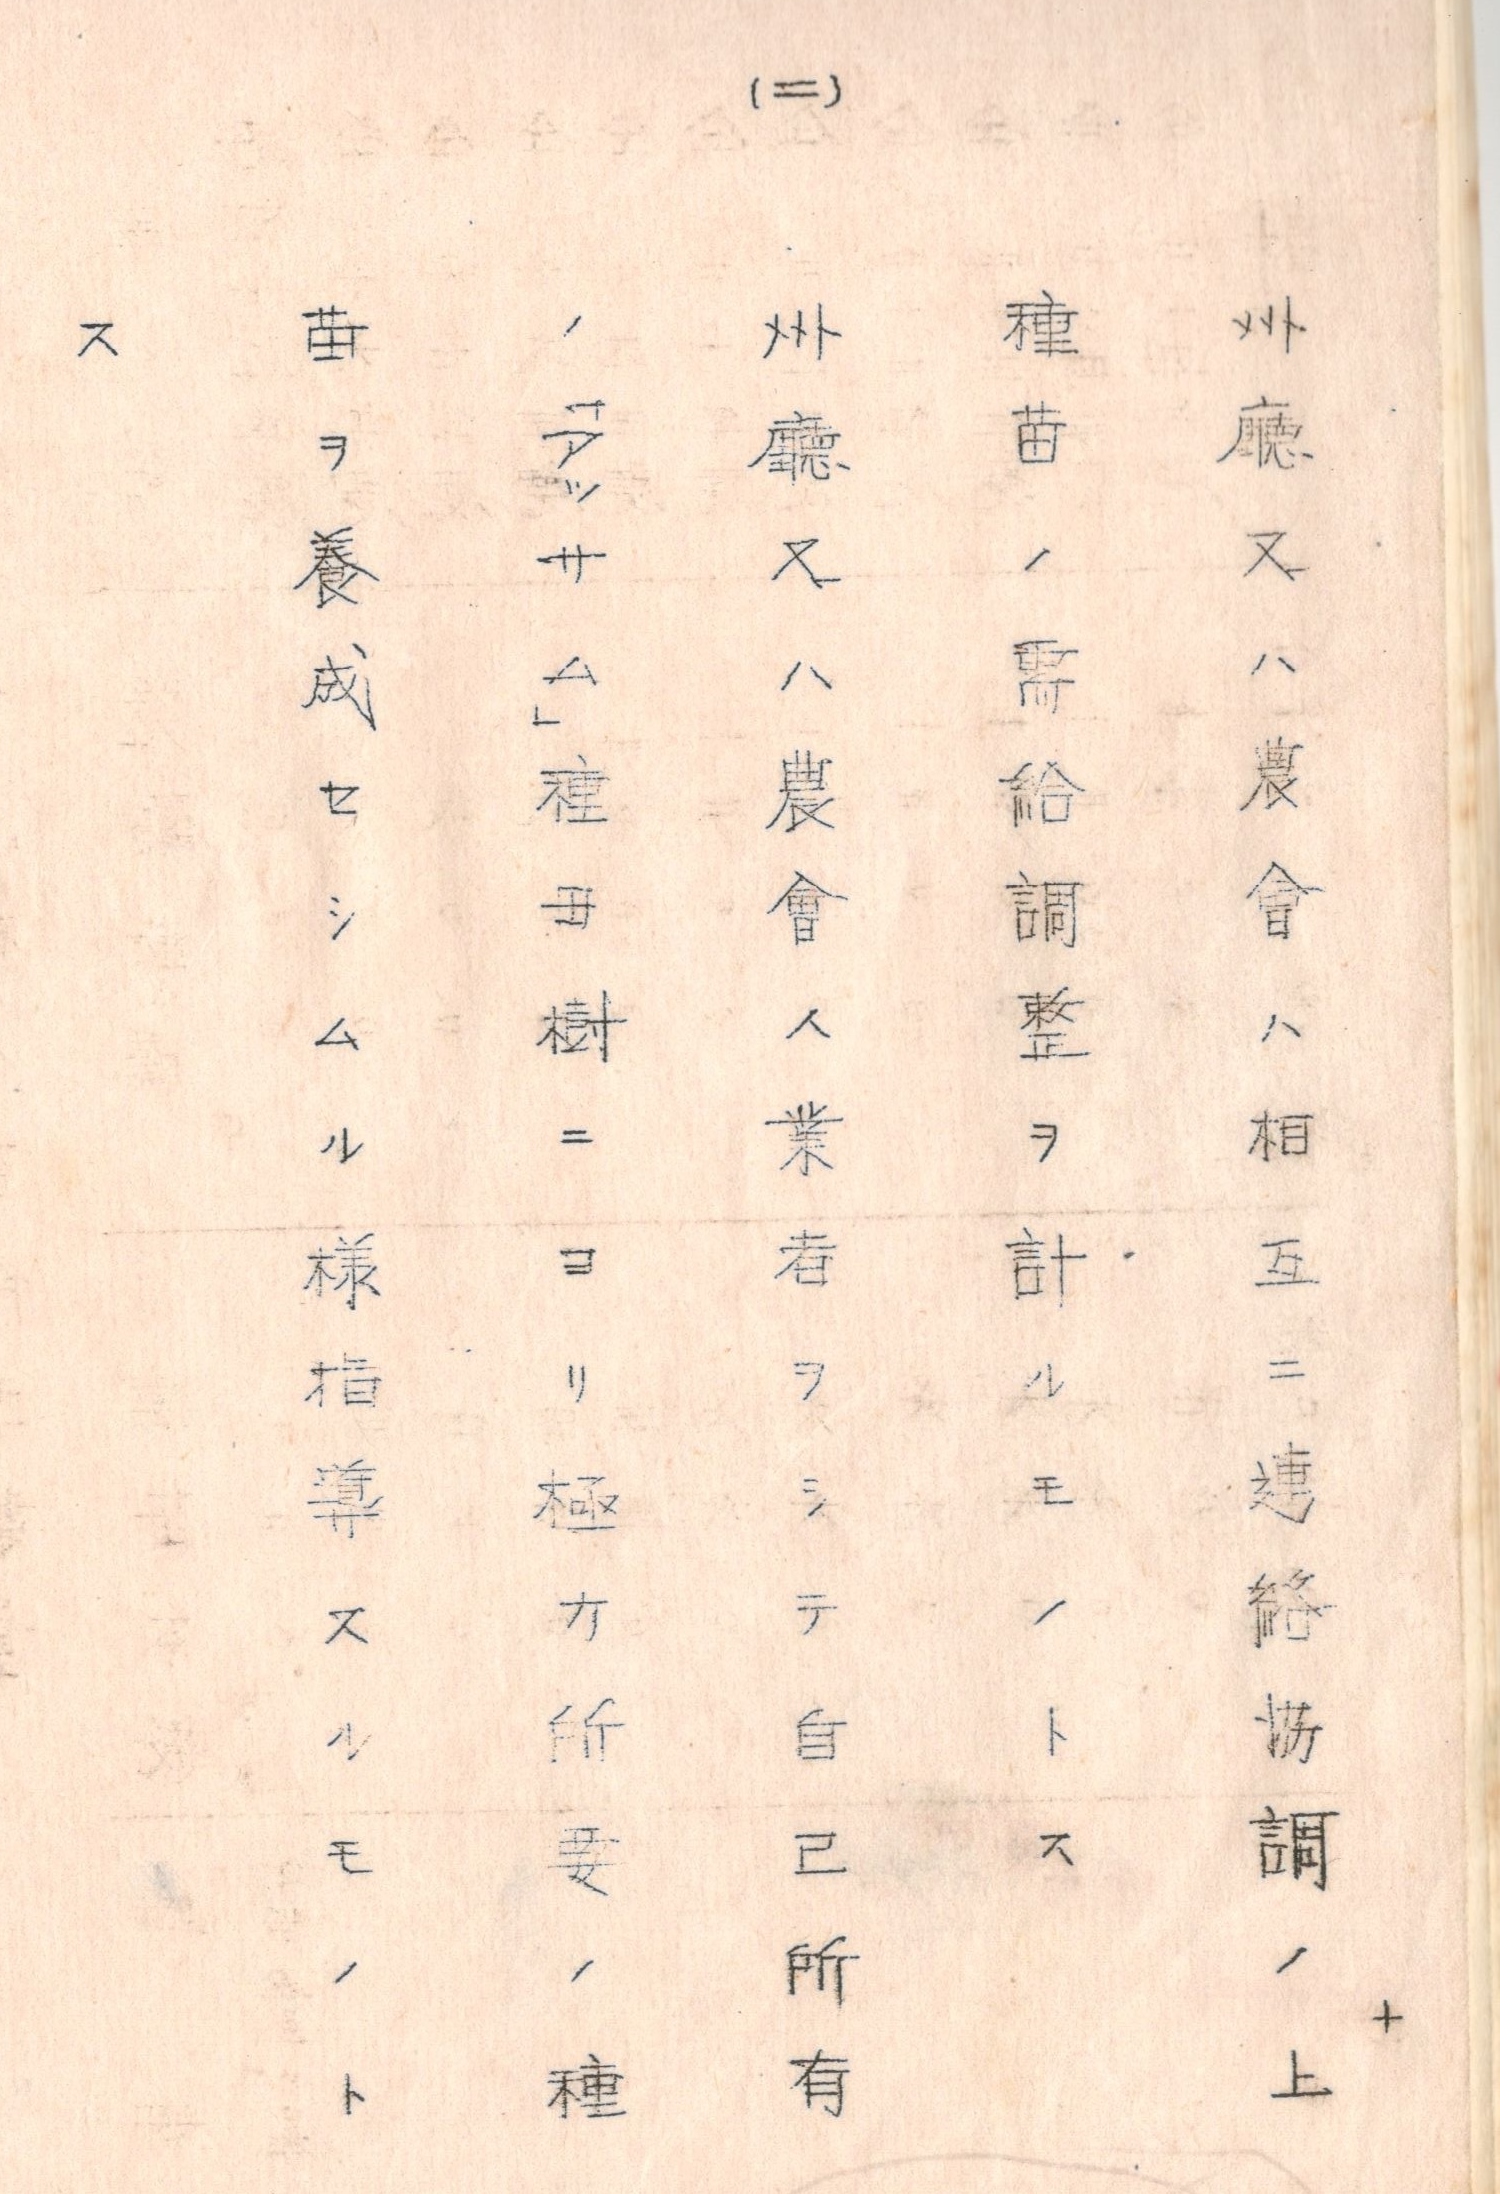 州廳又ハ農會ハ相互ニ連絡協調ノ上
十
種苗ノ需給調整ヲ計ルモノトス
(二)
州廳又ハ農會人業者ヲシテ自己所有
ノ「アツサム」種母樹ニヨリ極力所要ノ種
苗ヲ養成セシムル様指導スルモノト
ス